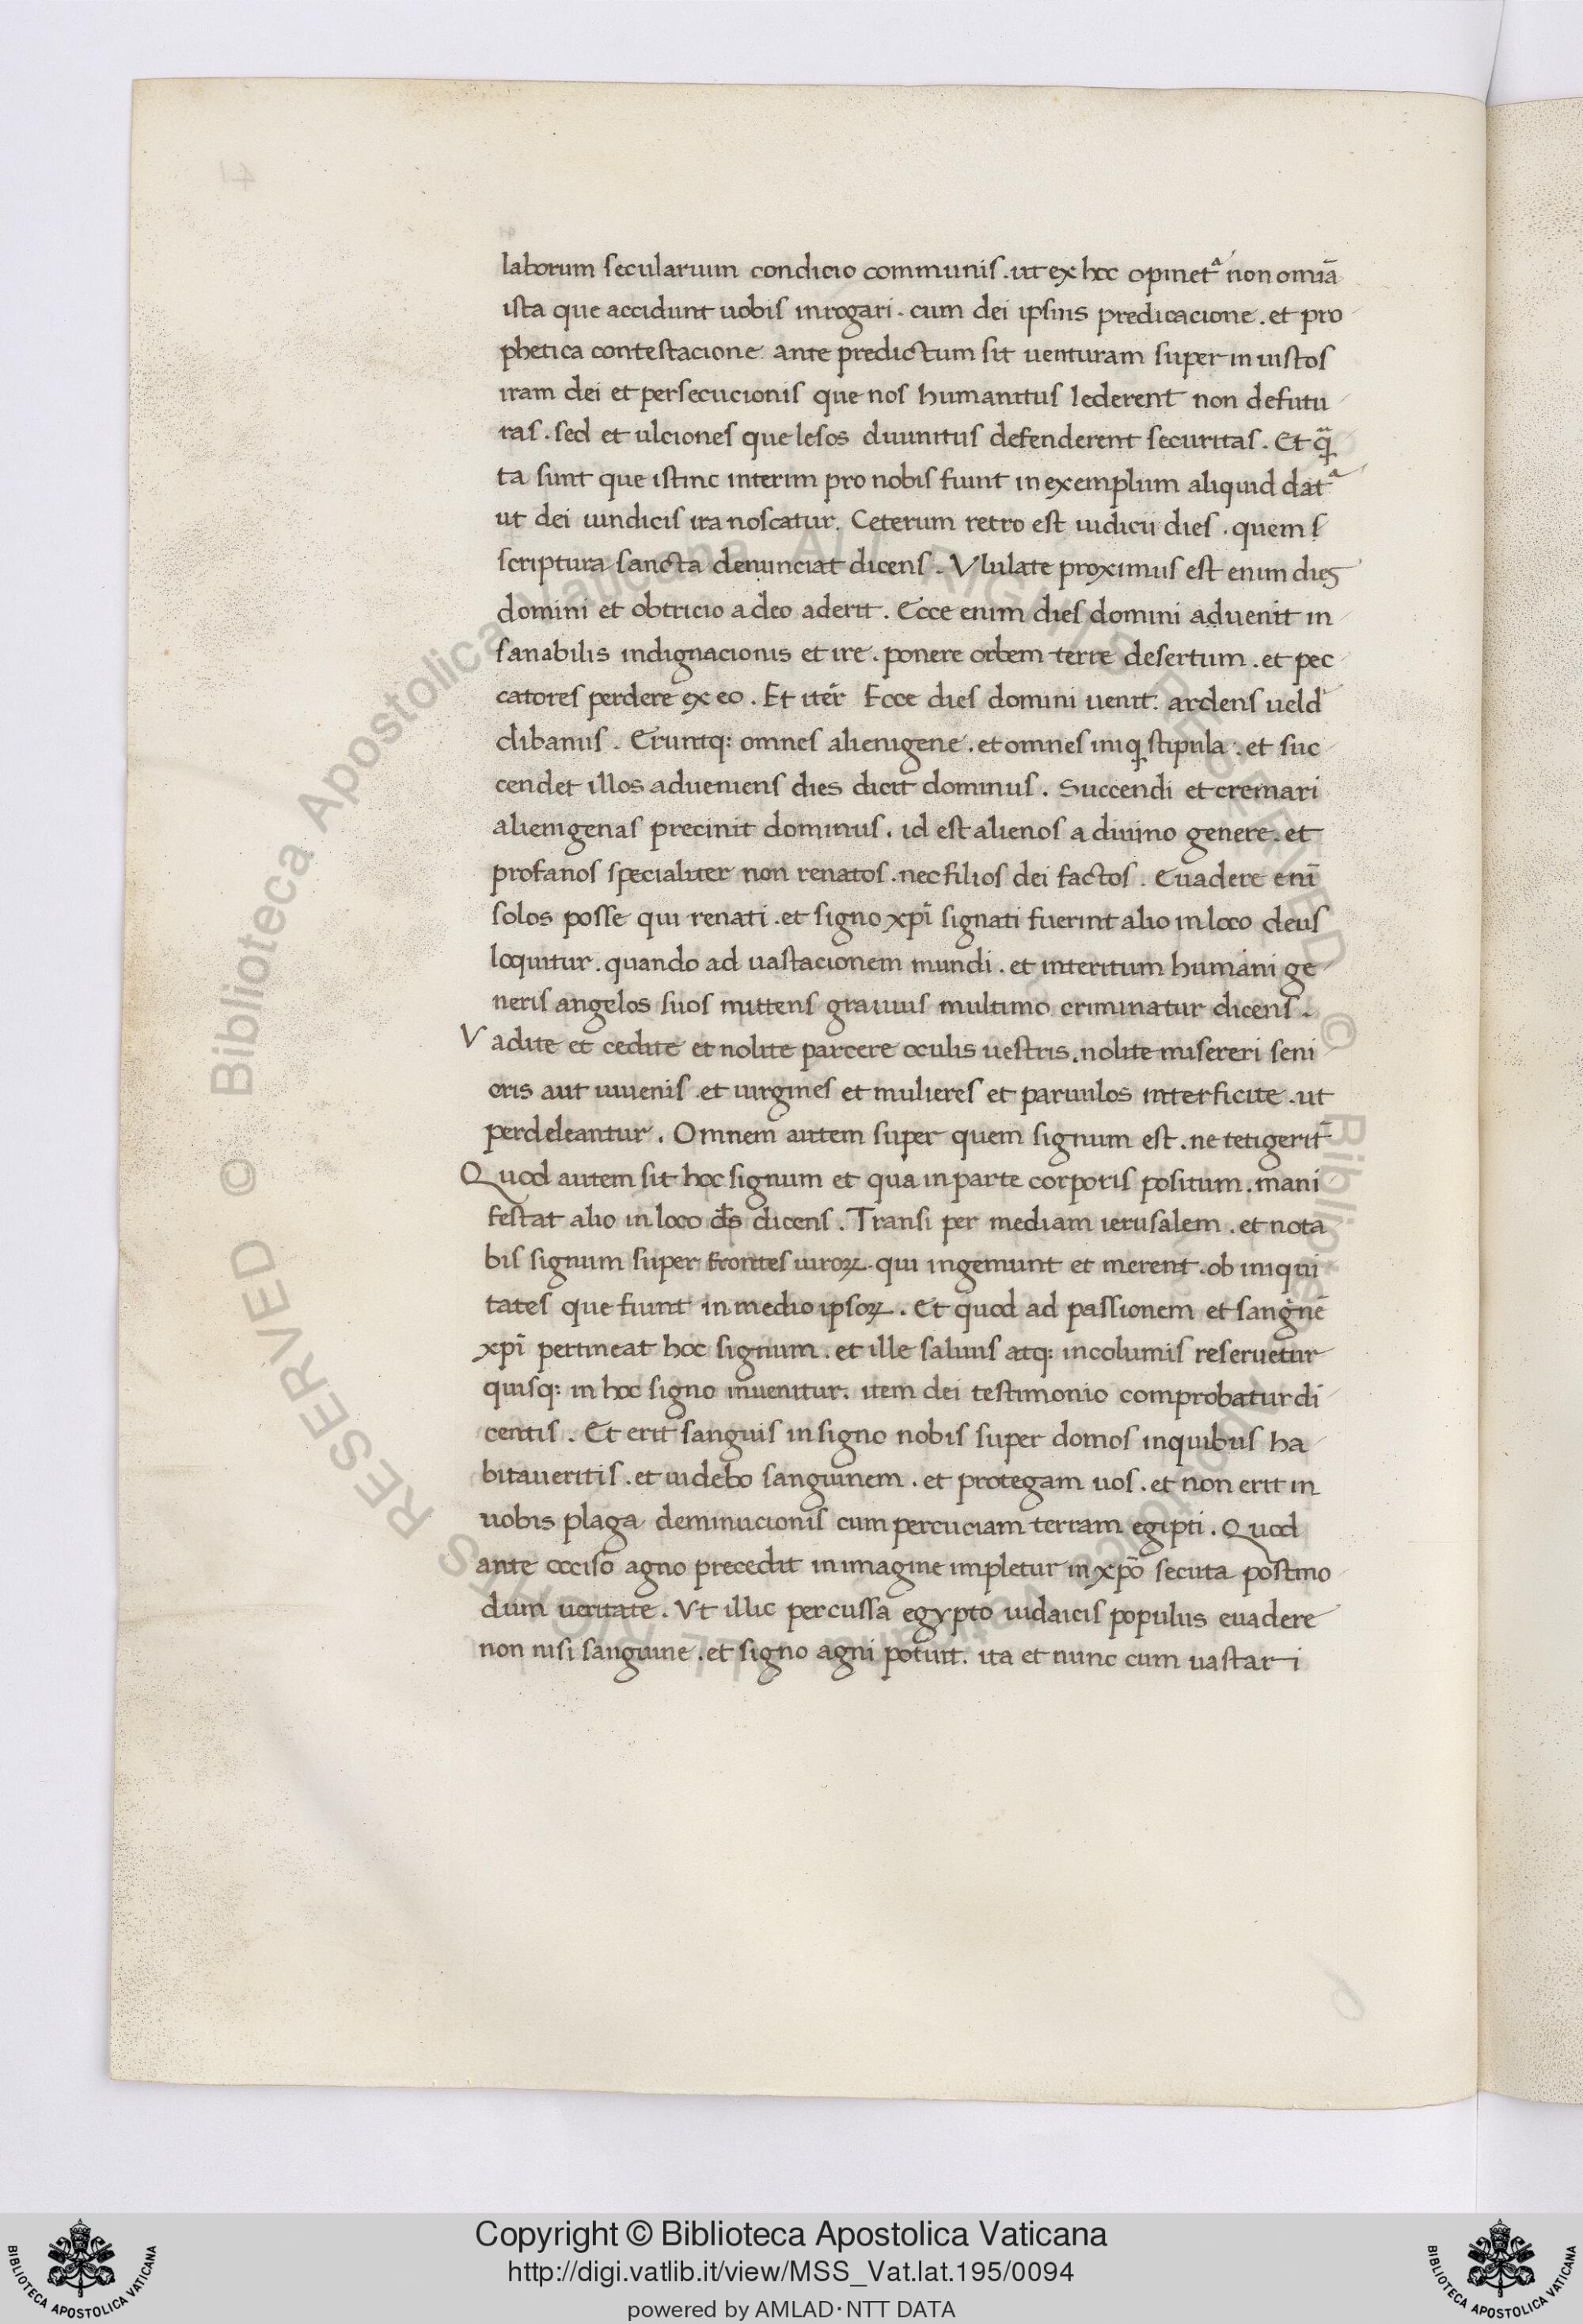 laborum secularium condicio communis . ut ex hoc opinetᷓ non omīa
ista que accidunt uobis inrogari . cum dei ipsius predicacione . et pro
phetica contestacione ante predictum sit uenturam super iniustos
iram dei et persecucionis que nos humanitus lederent non defutu
ras . sed et ulciones que lesos diuinitus defenderent securitas . Et q̄
ta sunt que istinc interim pro nobis fiunt in exemplum aliquid datᷓ
ut dei uindicis ira noscatur. Ceterum retro est iudicii dies . quem s
scriptura sancta denunciat dicens . Vlulate proximus est enim dies
domini et obtricio a deo aderit . Ecce enim dies domini aduenit in
sanabilis indignacionis et ire . ponere orbem terre desertum . et pec
catores perdere ex eo . Et iter̄ Ecce dies domini uenit. ardens ueld
clibanus . Eruntq: omnes alienigene . et omnes iniqi stipula . et suc
cendet illos adueniens dies dicit dominus . Succendi et cremari
alienigenas precinit dominus . id est alienos a diuino genere . et
profanos specialiter non renatos . nec filios dei factos . Euadere enī
solos posse qui renati . et signo xpī signati fuerint alio in loco deus
loquitur . quando ad uastacionem mundi . et interitum humani ge
neris angelos suos mittens grauius multimo criminatur dicens .
Vadite et cedite et nolite parcere oculis uestris . nolite misereri seni
oris aut iuuenis . et uirgines et mulieres et paruulos interficite . ut
perdeleantur . Omnem autem super quem signum est . ne tetigerit
Quod autem sit hoc signum et qua in parte corporis positum . mani
festat alio in loco ds̄ dicens . Transi per mediam ierusalem . et nota
bis signum super frontes uiroꝝ . qui ingemunt et merent . ob iniqui
tates que fiunt in medio ipsoꝝ . Et quod ad passionem et sangnē
xpī pertineat hoc signum . et ille saluus atq: incolumis reseruetur
quisq: in hoc signo inuenitur. item dei testimonio comprobatur di
centis . Et erit sanguis in signo nobis super domos in quibus ha
bitaueritis . et uidebo sanguinem . et protegam uos . et non erit in
uobis plaga deminucionis cum percuciam terram egipti . Quod
ante occiso agno precedit in imagine impletur in xpō secuta postmo
dum ueritate . Vt illic percussa egypto iudaicis populus euadere
non nisi sanguine . et signo agni potuit. ita et nunc cum uastari
Copyright © Biblioteca Apostolica Vaticana
http://digi.vatlib.it/view/MSS_Vat.lat.195/0094
powered by AMLAD·NTT DATA